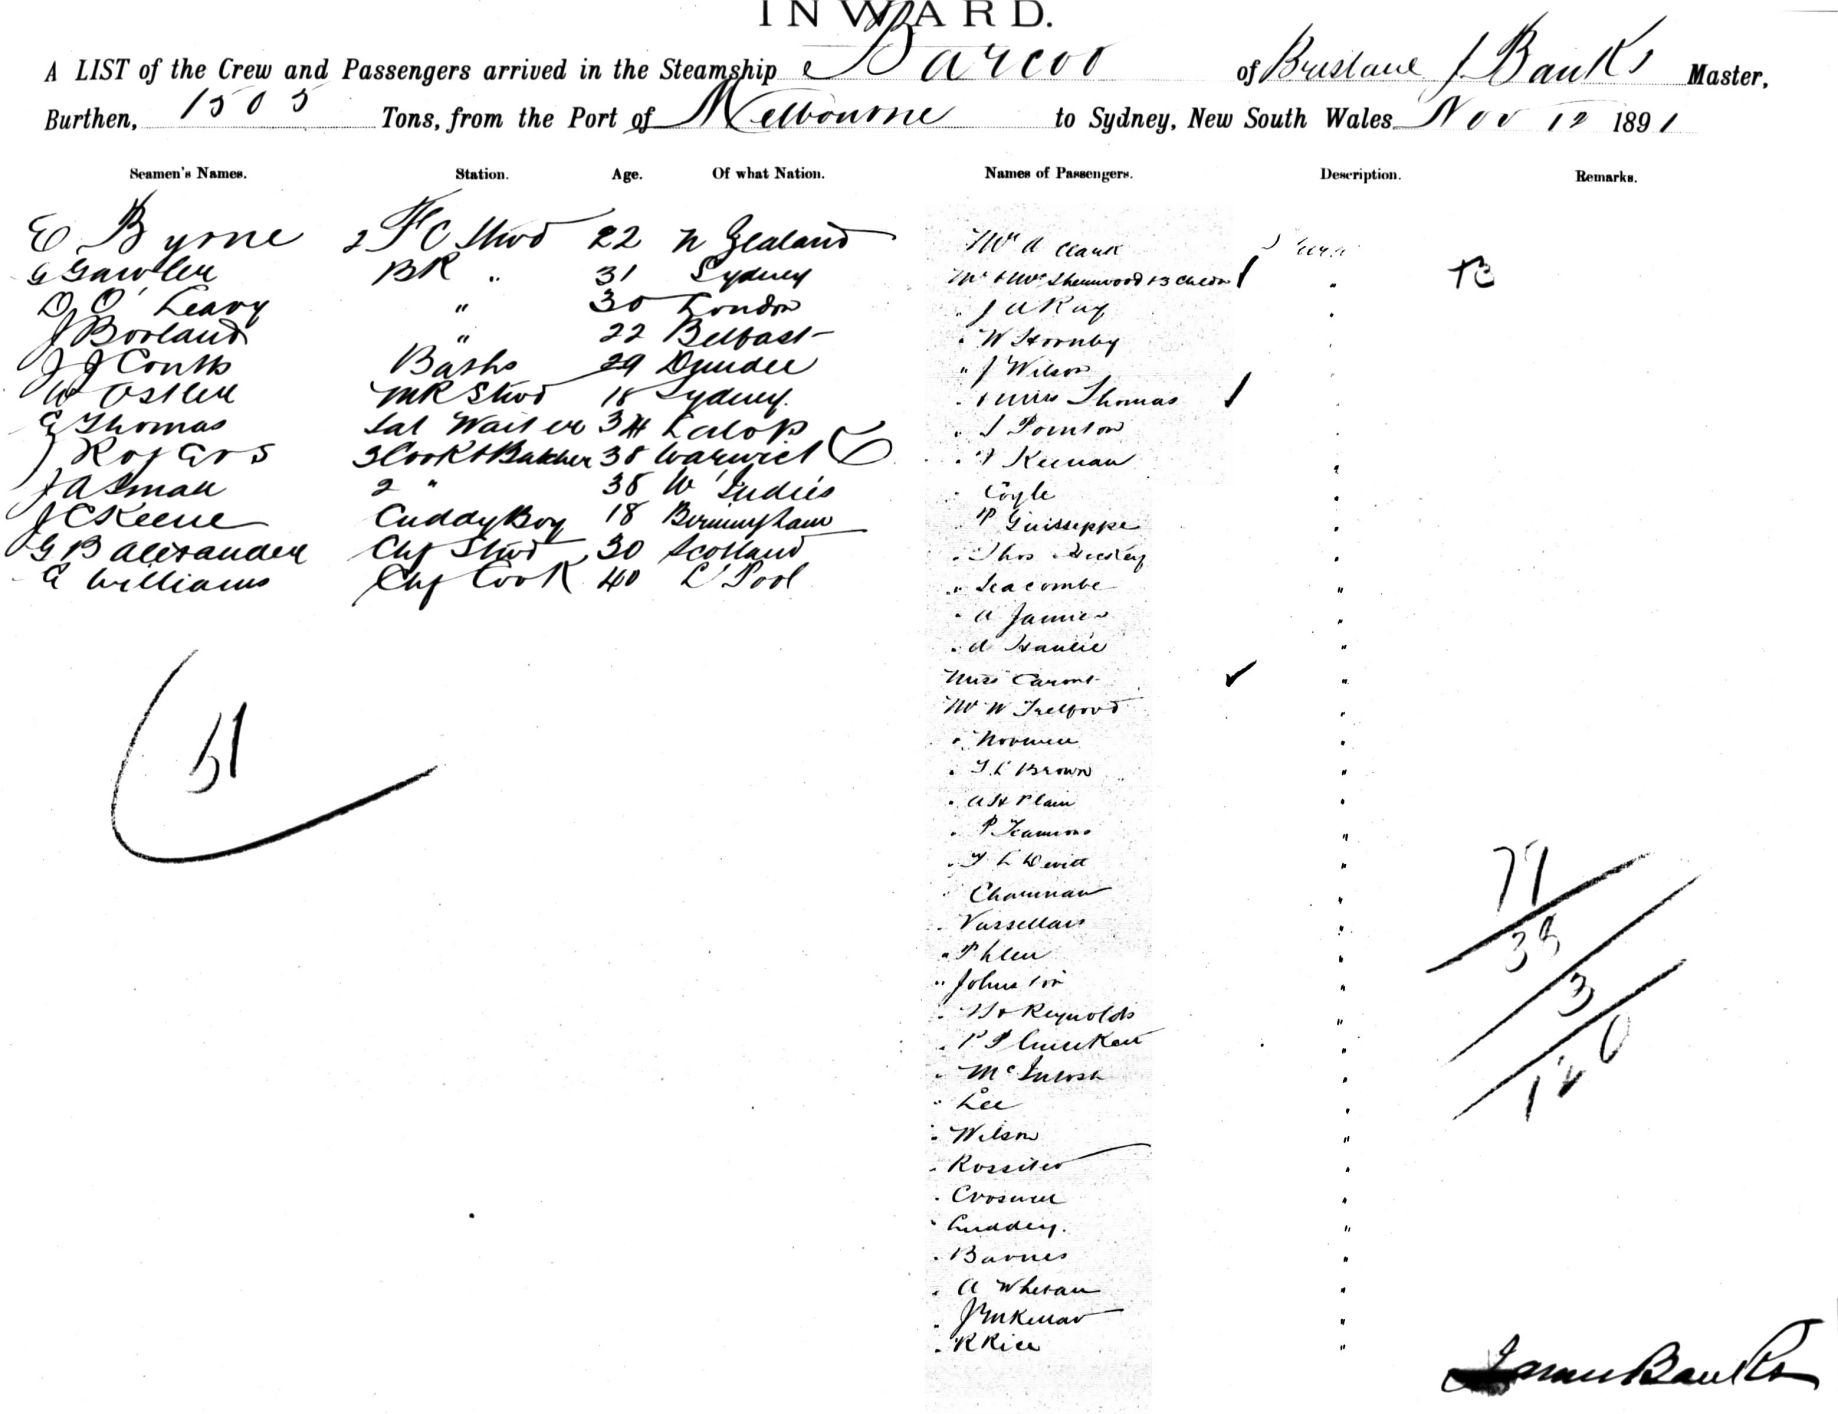 INWARD.
A LIST of the Crew and Passengers arrived in the Steamship Barcoo of Brisbane J Banks Master,
Burthen, 1505 Tons, from the Port of Melbourne to Sydney, New South Wales Nov 12 1891
Seamen's Names. Station. Age. Of what Nation. Names of Passengers. Description. Remarks.
E Byrne 2 F C Stwd 22 N Zealand
G Gawler BR " 31 Sydney
D O'Leary " 30 London
J Borland " 22 Belfast
J J Coutts Baths 29 Dundee
W Ostler MR Stwd 18 Sydney.
G Thomas Sal Waiter 34
J Rogers 3 Cook & Butcher 38 Warwick
J A Small 2 " 38 W Indies
J C Keene Cuddy Boy 18 Birmingham
G B Alexander Chf Stwd 30 Scotland
G Williams Chf Cook 40 L'Pool
51
Mr A Clark
Mr & Mrs Sherwood & 3 Chldn " B
" J A Ray "
" W Hornby
" J Wilson
" & Miss Thomas
" J Pointon "
" Keenan "
" Coyle "
" P Guisseppe "
" Thos "
" Seacombe "
" A "
" A "
Miss "
Mr W Telford "
" "
" T L Brown "
" A H Plain "
" P "
" T L Devitt "
" Chapman "
" "
" Phlen "
" Johnston "
" Reynolds "
" P "
" McIntosh "
" Lee "
" Wilson "
" Rossiter "
" "
" Cuddey. "
" Barnes "
" A Whelan "
" J McKellar "
" R Rice "
77
38
3
120
James Banks